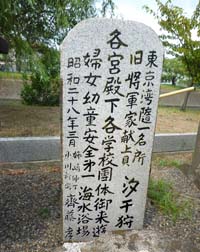 東京湾随一名所
旧将軍家献上貝 汐干狩
各宮殿下各学校團体御来遊
婦女幼童安全第一海水浴場
昭和二十八年三月
齋藤